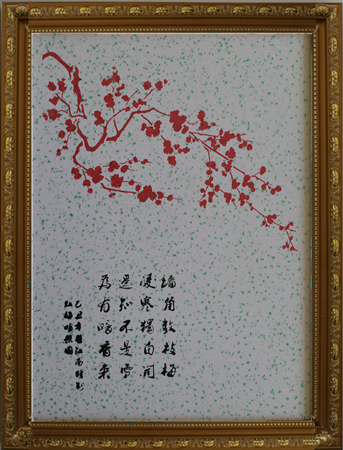 墙角数枝梅
凌寒獨自開
遥知不是雪
為有暗香来
己丑年